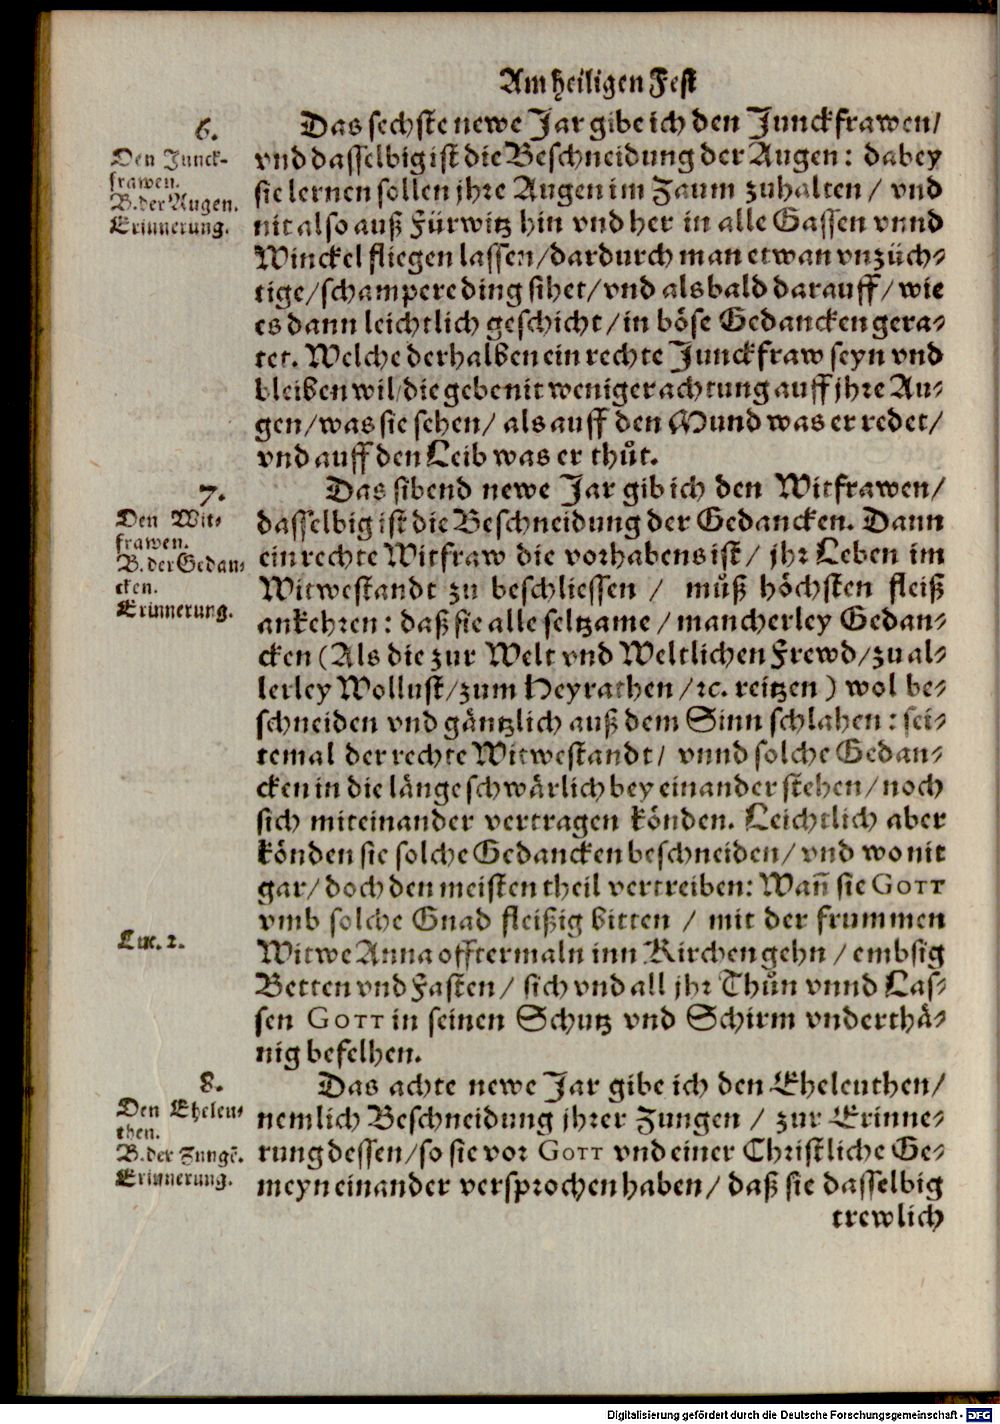 Am heiligen Fest
6.
Den Junck-
frawen.
B. der Augen.
Erinnerung.
Das sechste newe Jar gibe ich den Junckfrawen/
vnd dasselbig ist die Beschneidung der Augen: dabey
sie lernen sollen jhre Augen im Zaum zuhalten / vnd
nit also auß Fürwitz hin vnd her in alle Gassen vnnd
Winckel fliegen lassen/dardurch man etwan vnzüch-
tige/schampere ding sihet/vnd als bald darauff/wie
es dann leichtlich geschicht/in böse Gedancken gera-
tet. Welche derhalben ein rechte Junckfraw seyn vnd
bleiben wil/die gebe nit weniger achtung auff jhre Au-
gen/was sie sehen/ als auff den Mund was er redet/
vnd auff den Leib was er thůt.
7.
Den Wit-
frawen.
B. der Gedan-
cken.
Erinnerung.
Das sibend newe Jar gib ich den Witfrawen/
dasselbig ist die Beschneidung der Gedancken. Dann
ein rechte Witfraw die vorhabens ist/ jhr Leben im
Witwestandt zu beschliessen / můß höchsten fleiß
ankehren: daß sie alle seltzame/mancherley Gedan-
cken (Als die zur Welt vnd Weltlichen Frewd/zu al-
lerley Wollust/zum Heyrathen/ꝛc. reitzen) wol be-
schneiden vnd gäntzlich auß dem Sinn schlahen: sei-
temal der rechte Witwestandt/ vnnd solche Gedan-
cken in die länge schwärlich bey einander stehen/noch
sich miteinander vertragen könden. Leichtlich aber
könden sie solche Gedancken beschneiden/ vnd wo nit
gar/doch den meisten theil vertreiben: Wañ sie GOTT
vmb solche Gnad fleißig bitten / mit der frummen
Luc. 2.
Witwe Anna offtermaln inn Kirchen gehn / embsig
Betten vnd Fasten/ sich vnd all jhr Thůn vnnd Las-
sen GOTT in seinen Schutz vnd Schirm vnderthä-
nig befelhen.
8.
Den Eheleu-
then.
B. der Zungẽ.
Erinnerung.
Das achte newe Jar gibe ich den Eheleuthen/
nemlich Beschneidung jhrer Zungen / zur Erinne-
rung dessen/so sie vor GOTT vnd einer Christliche Ge-
meyn einander versprochen haben/ daß sie dasselbig
trewlich
Digitalisierung gefördert durch die Deutsche Forschungsgemeinschaft - DFG